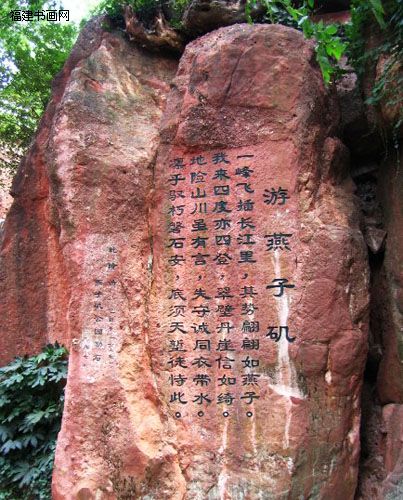 福建书画网
游燕子矶
一峰飞插长江里，其势翩翩如燕子。
我来四度亦四登，翠壁丹崖信如绮。
地险山川虽有言，失守诚同衣带水。
凛乎驭朽磐石安，底须天堑徒恃此。
燕子矶公园勒石